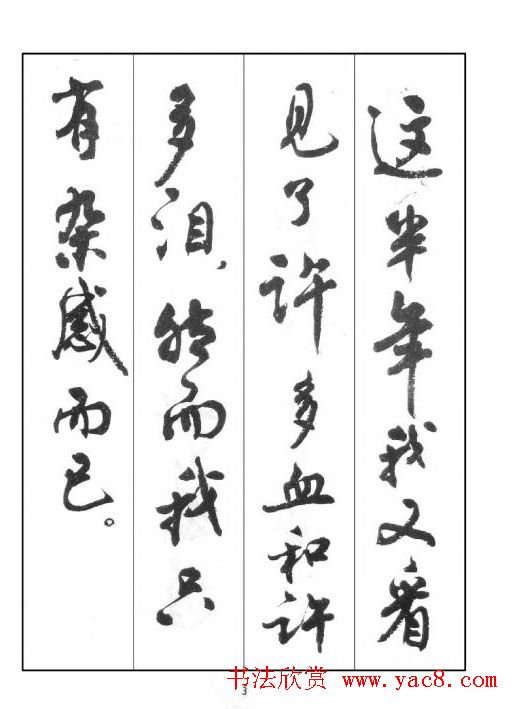 这半年我又看
见了许多血和许
多泪，然而我只
有杂感而已。
3
书法欣赏 www.yac8.com